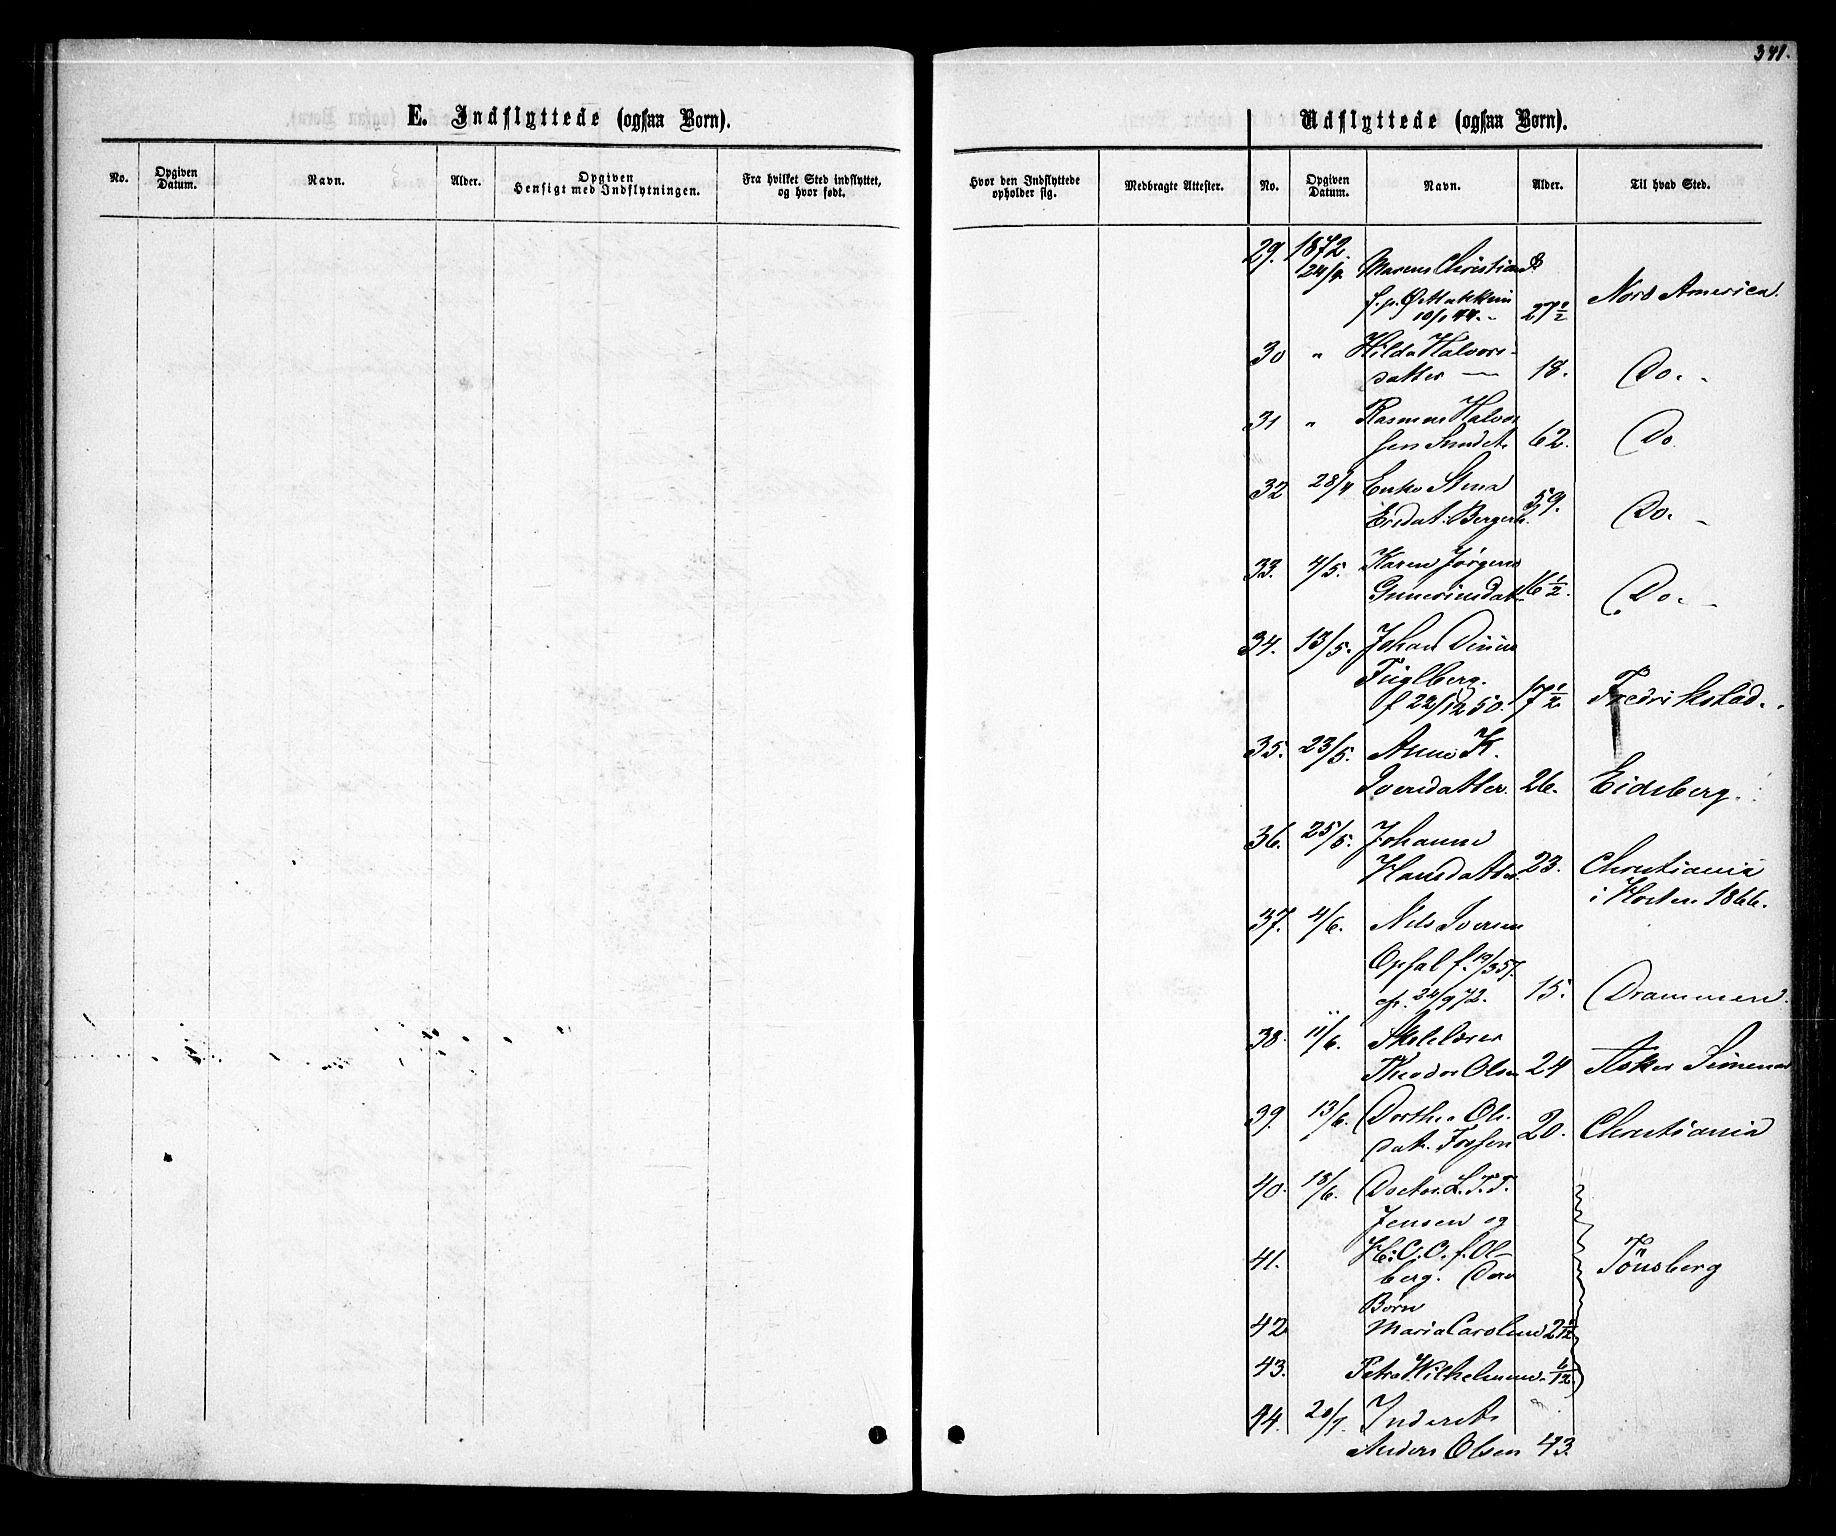 341.
E. Indflyttede (ogsaa Børn).
No. Opgiven Datum. Navn. Alder. Opgiven Hensigt med Indflytningen. Fra hvilket Sted indflyttet, og hvor født.
Udflyttede (ogsaa Børn).
Hvor den Indflyttede opholder sig. Medbragte Attester. No. Opgiven Datum. Navn. Alder. Til hvad Sted.
29. 1872.
24/4 Maren Christians
10/1 44. 27 1/2 Nord America.
30 " Hilda Halvors-
datter — 18. Do. -
31 " Rasmus Halvor
sen Sundet. 62. Do
32 28/4 Stina
Ersdat. 59. Do. -
33. 4/5. Karen Jørgens
16 1/2. Do. -
34. 13/5. Johan
Fuglberg.
f 22/12 50. 17 1/2 Fredrikstad.
35. 23/5. Anne K.
Iversdatter. 26. Eidsberg.
36. 25/5. Johanne
Hansdatter. 23. Christiania
i Horten 1866.
37. 4/6. Nils Iversen
Opsal f. 19/3 57.
24/9 72. 15. Drammen.
38. 11/6. Skolelærer
Theodor Olsen 24 Asker
39. 13/6. Dorthea Ols-
dat. Fossen 20. Christiania
40. 18/6. Doctor L. T. T.
Jensen og
41. H. C. O. f. Ol-
berg. Deres Tönsberg
Børn
42 Maria Caroline 2 1/2
43. Petra Wilhelmine 6/12.
44. 20/7. Inderst.
Anders Olsen 43.